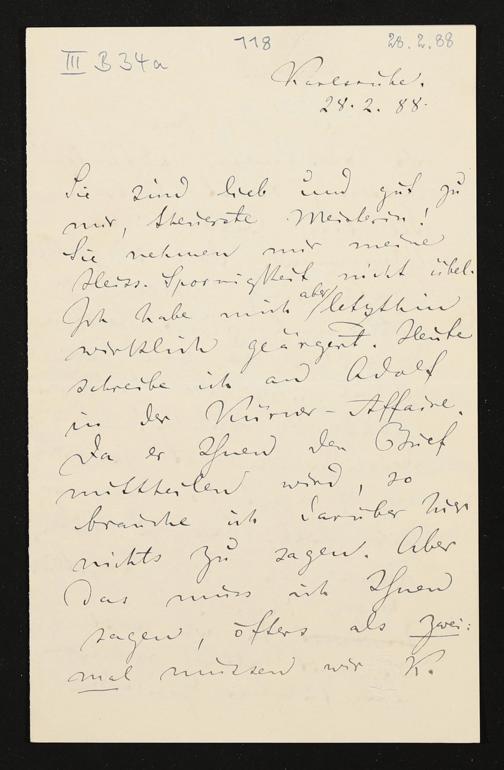 III B 34a
118
28.2.88
Karlsruhe.
28. 2. 88.
Sie sind lieb und gut zu
mir, theuerste Meisterin!
Sie nehmen mir meine
Heiss-Spornigkeit nicht übel.
Ich habe mich aber letzthin
wirklich geärgert. Heute
schreibe ich an Adolf
in der Kürner-Affaire.
Da er Ihnen den Brief
mittheilen wird, so
brauche ich darüber hier
nichts zu sagen. Aber
das muss ich Ihnen
sagen, öfters als zwei-
mal müssen wir K.